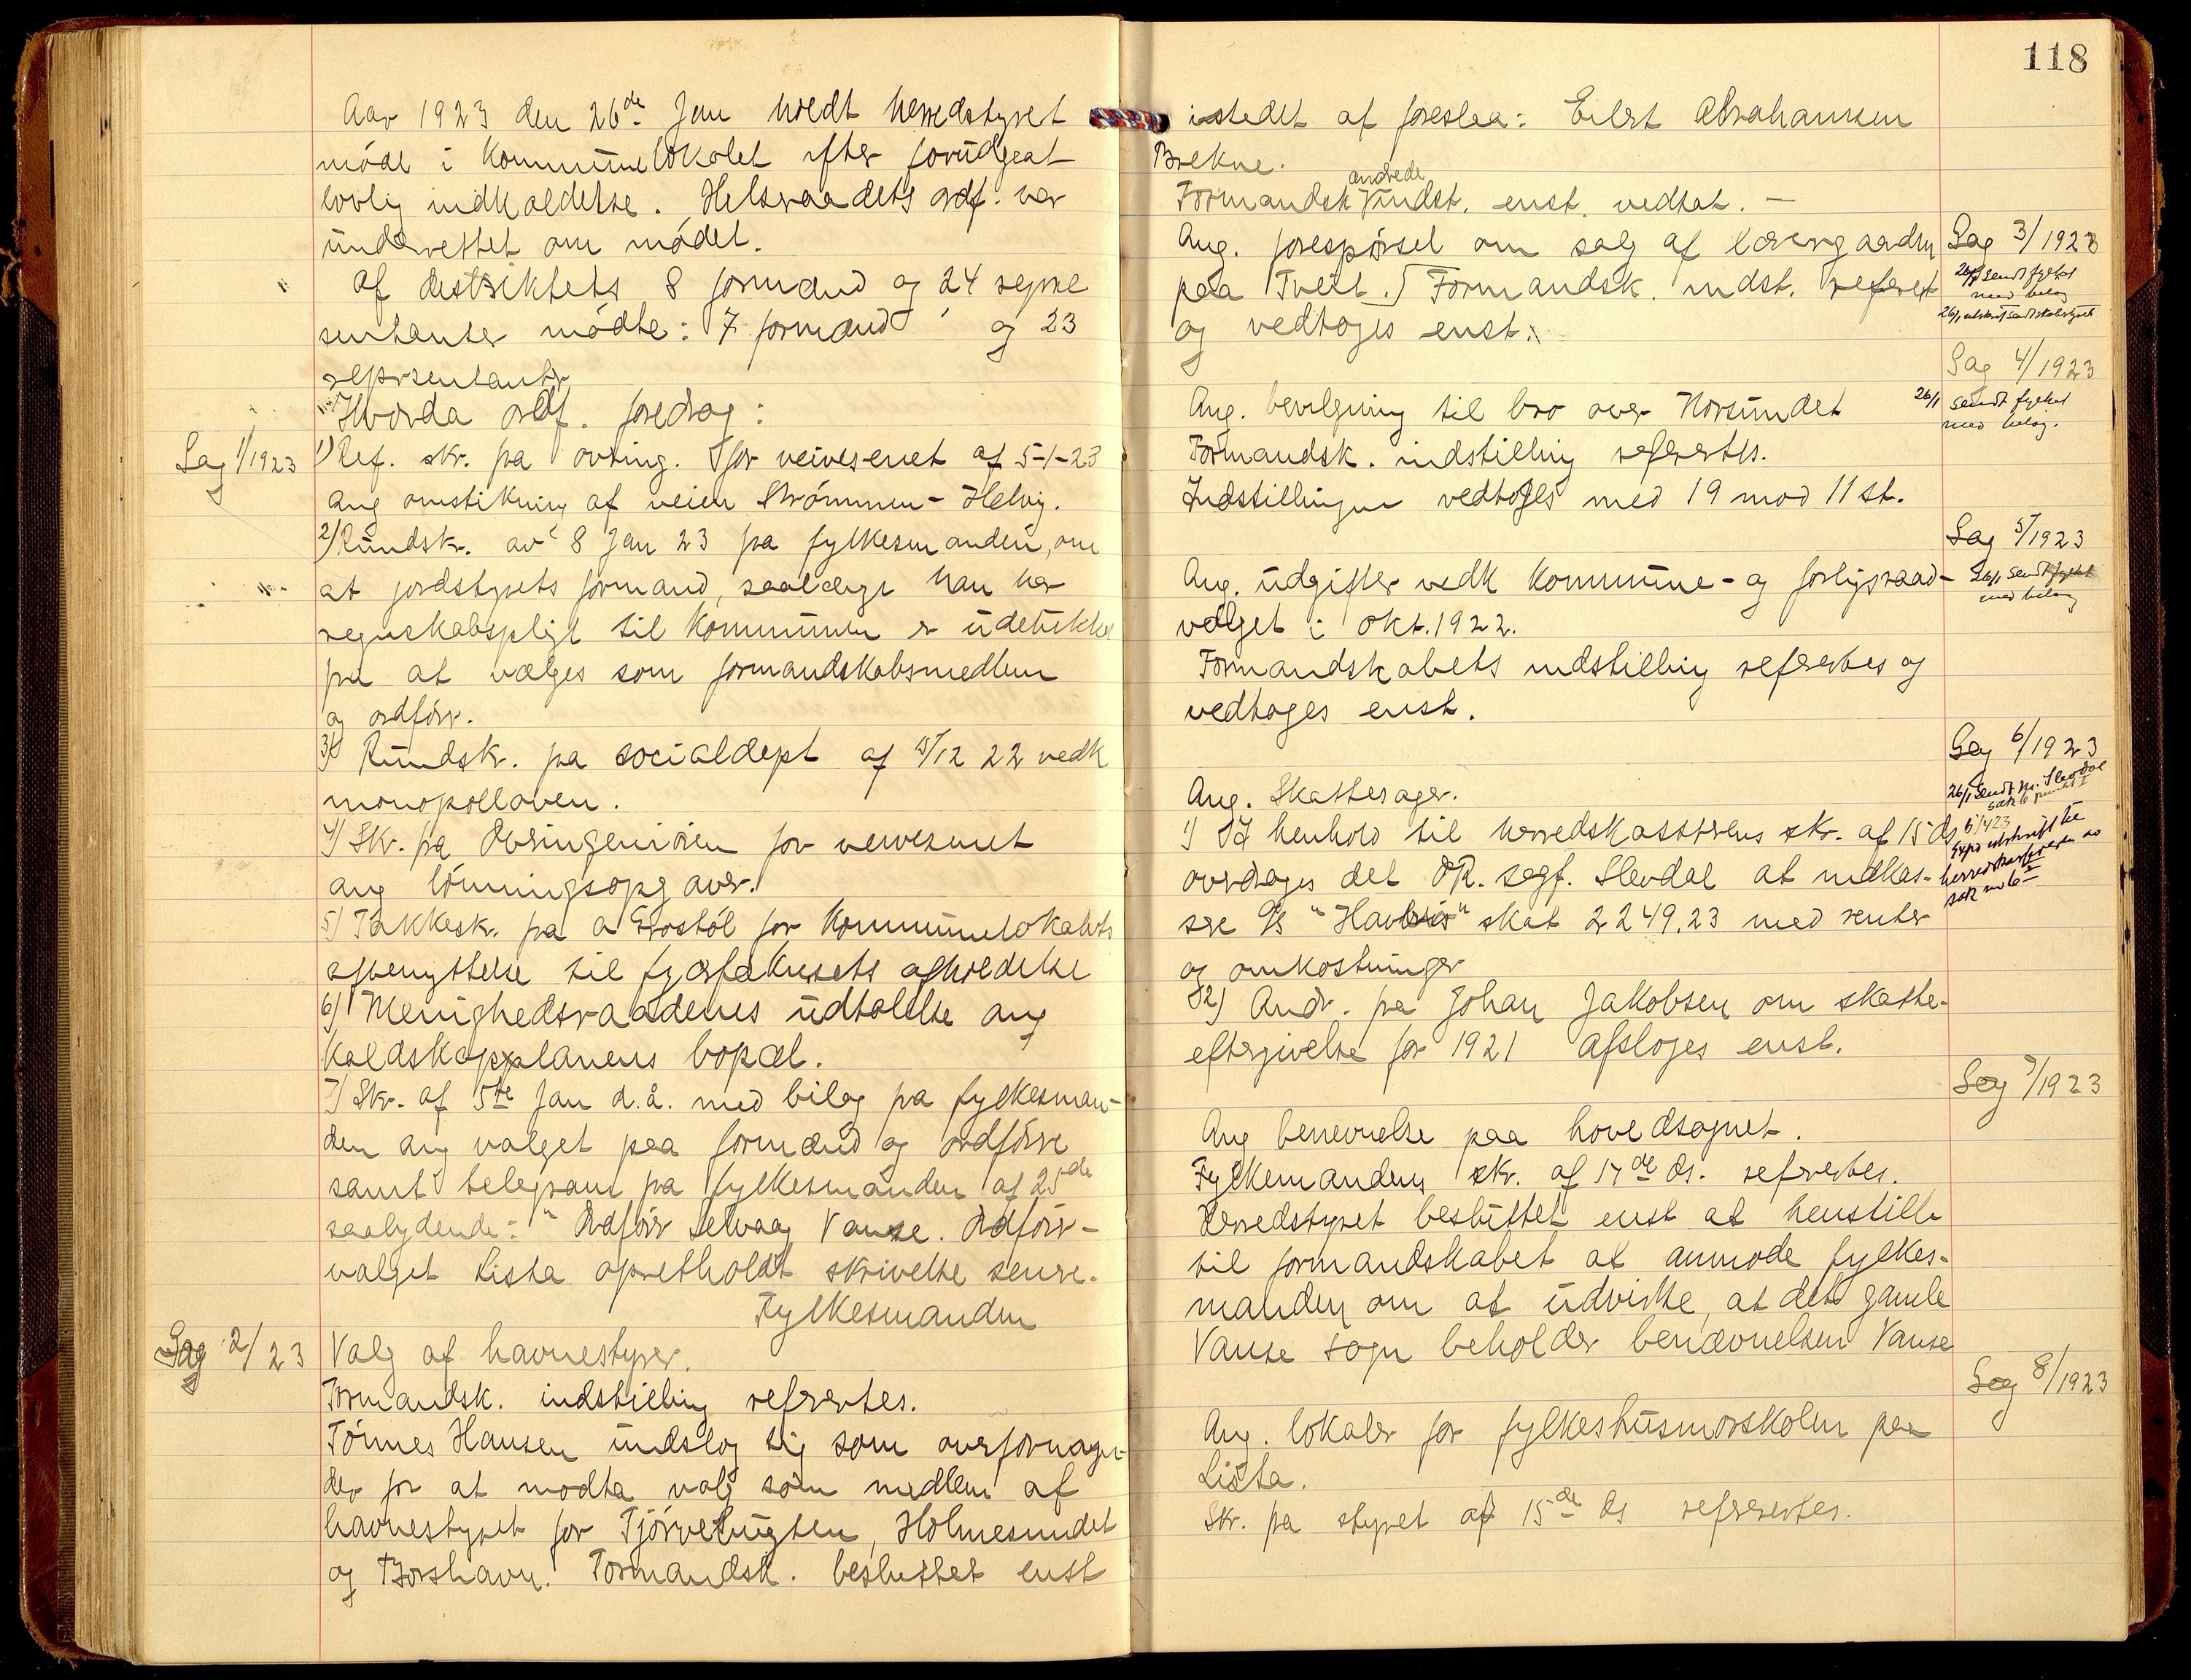 Aar 1923 den 26de Jan holdt herredstyret
møde i kommunelokalet efter forudgeat
lovlig indkaldelse. Helseraadets ordf. var
underrettet om mødet.
Af destriktets 8 formænd og 24 repre
sentanter mødte: 7 formænd og 23
reprsentantr
Hvorda ordf. foredrog:
Sag 1/1923
1) Ref. skr. fra oving. for veivesenet af 5-1-23
ang omstikning af veien Strømmen - Helvig.
2) Rundskr. av 8 Jan 23 fra fylkesmanden, om
at jordstyrets formand, saalænge han har
regnskabspligt til kommunen er udelukke
fra at vælges som formandskabsmedlem
og ordfører.
3) Rundskr. fra socialdept af 15/12 22 vedk
monopolloven.
4) Skr. fra Overingeniøren for veivesenet
ang lønningsopgaver.
5) Takkeskr. fra a Frostøl for kommunelokalets
afbenyttelse til afholdelse
6) Menighedsraadenes udtalelse ang
kaldskapplanens bopæl.
7) Skr. af 5te Jan d.å. med bilag fra fylkesman-
den ang valget paa formænd og ordfører
samt telegram fra fylkesmanden af 25de
saalydende: "Ordfører Selvaag Vanse. Ordfører-
valget Lista opretholdt skrivelse senere.
Fylkesmanden
Sag 2/23
Valg af havnestyrer.
Formandsk. indstilling refereertes.
Tønnes Hansen undslog sig som overformyn-
der for at modta valg som medlem af
havnestyret for Tjørvebugten, Holmesundet
og Borshavn. Formandsk. besluttet enst
118
istedet at foreslaa: Eilert Abrahamsen
Brekne.
Formandsk andrede indst. enst. vedtat. -
Sag 3/1923
Ang. forespørsel om salg af lærergaarden
paa Tveit. Formandsk. indst. referert
og vedtoges enst.
26/1 sendt fylket
med bilag
26/1 utskrift sendt skolestyret
Sag 4/1923
Ang. bevilgning til bro over Hørsundet
Formandsk. indstilling refereertes.
Indstillingen vedtoges med 19 mod 11 st.
26/1 sendt fylket
med bilag.
Sag 5/1923
Ang. udgifter vedk kommune- og forligsraad-
valget i okt. 1922.
Formandskabets indstilling refereertes og
vedtoges enst.
26/1 sendt fylket
med bilag
Sag 6/1923
26/1 sendt hr. Slevdal
sak 6 punkt 1
Ang. Skattesager.
1) I henhold til herredskasserens skr. af 15 ds
overdrages det OR. sagf. Slevdal at indkas-
sere A/S "Havbris" skat 2249,23 med renter
og omkostninger
Exp utskrift til
herredskasseren av
sak no 6 II
2) Andr. fra Johan Jakobsen om skatte-
eftergivelse for 1921 afsloges enst.
Sag 7/1923
Ang benevnelse paa hovedsognet.
Fylkemandens skr. af 17de ds. refereertes.
Herredstyret besluttet enst at henstille
til formandskabet at anmode fylkes-
manden om at udvirke, at det gamle
Vanse sogn beholder benævnelsen Vanse
Sag 8/1923
Ang. lokaler for fylkeshusmorskolen paa
Lista.
Skr. fra styret af 15de ds refereertes.